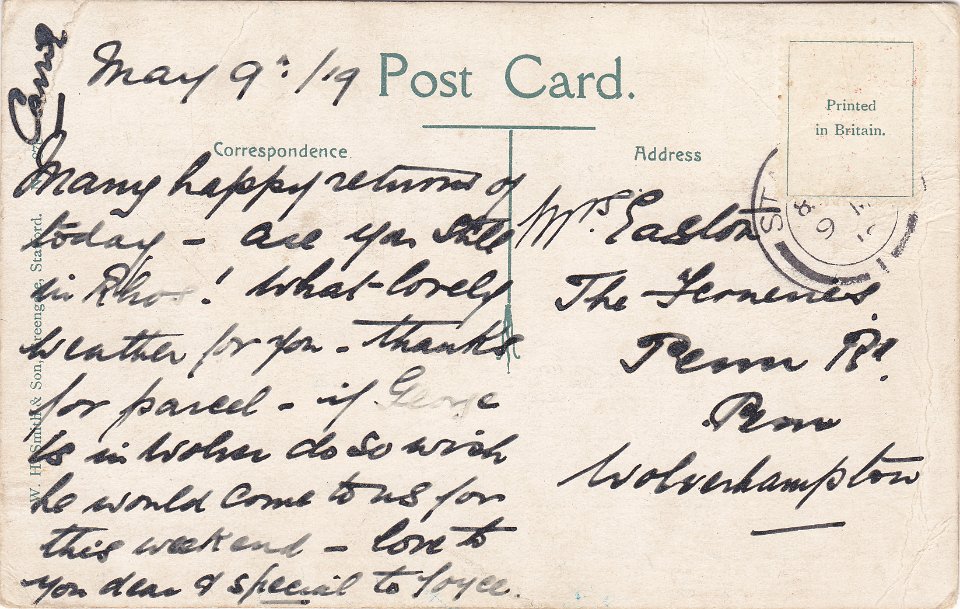 May 9th /19
Post Card.
Printed
in Britain.
Correspondence
Address
Many happy returns of
today - are you still
in Rhos! What lovely
weather for you - thanks
for parcel - if George
is in Wolver do so wish
he would come to us for
this weekend - love to
you dear & special to Joyce.
Carrie
Mrs. Easton
The Ferneries.
Penn Rd.
Penn
Wolverhampton
W. H. Smith & Son, Stafford.